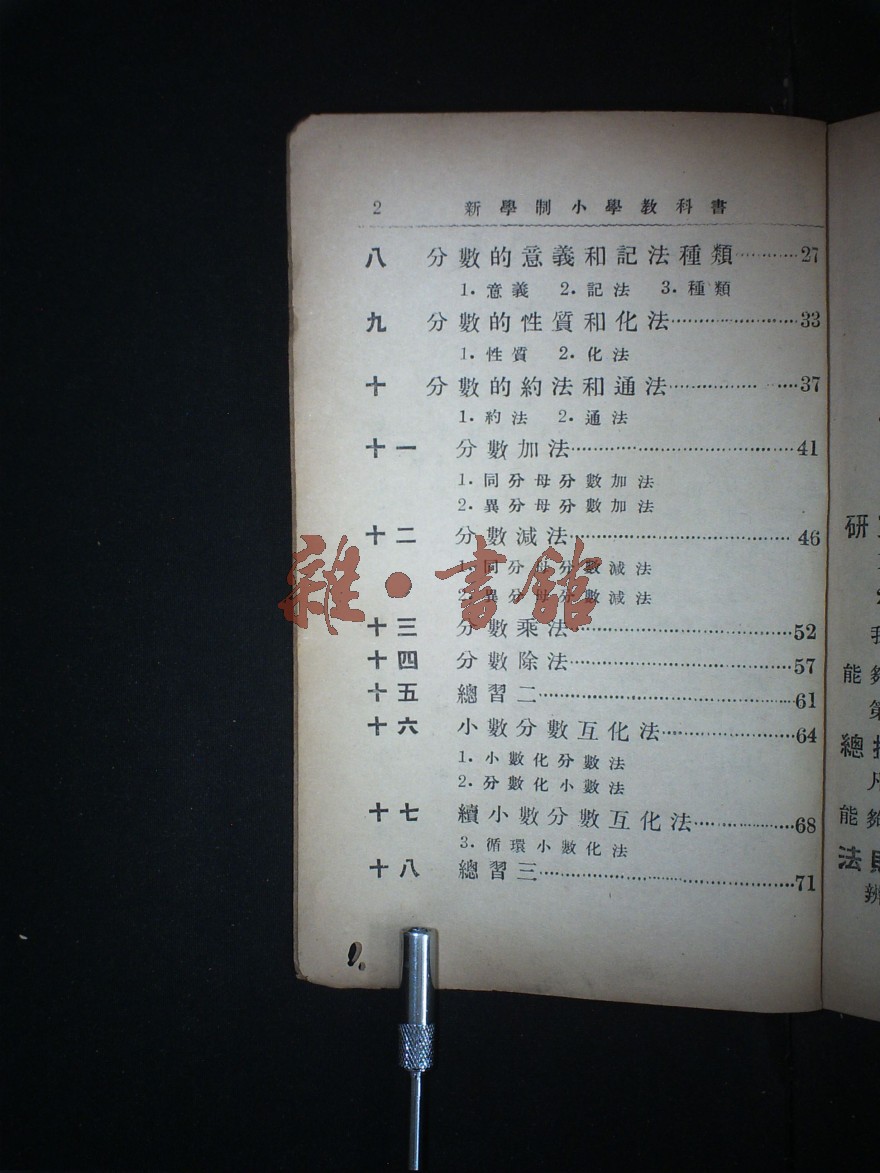 2 新學制小學教科書
八 分數的意義和記法種類…………27
1. 意義 2. 記法 3. 種類
九 分數的性質和化法…………33
1. 性質 2. 化法
十 分數的約法和通法…………37
1. 約法 2. 通法
十一 分數加法…………41
1. 同分母分數加法
2. 異分母分數加法
十二 分數減法…………46
1. 同分母分數減法
2. 異分母分數減法
雜·書館
十三 分數乘法…………52
十四 分數除法…………57
十五 總習二…………61
十六 小數分數互化法…………64
1. 小數化分數法
2. 分數化小數法
十七 續小數分數互化法…………68
3. 循環小數化法
十八 總習三…………71
研
能夠
總
能夠
法則
辨